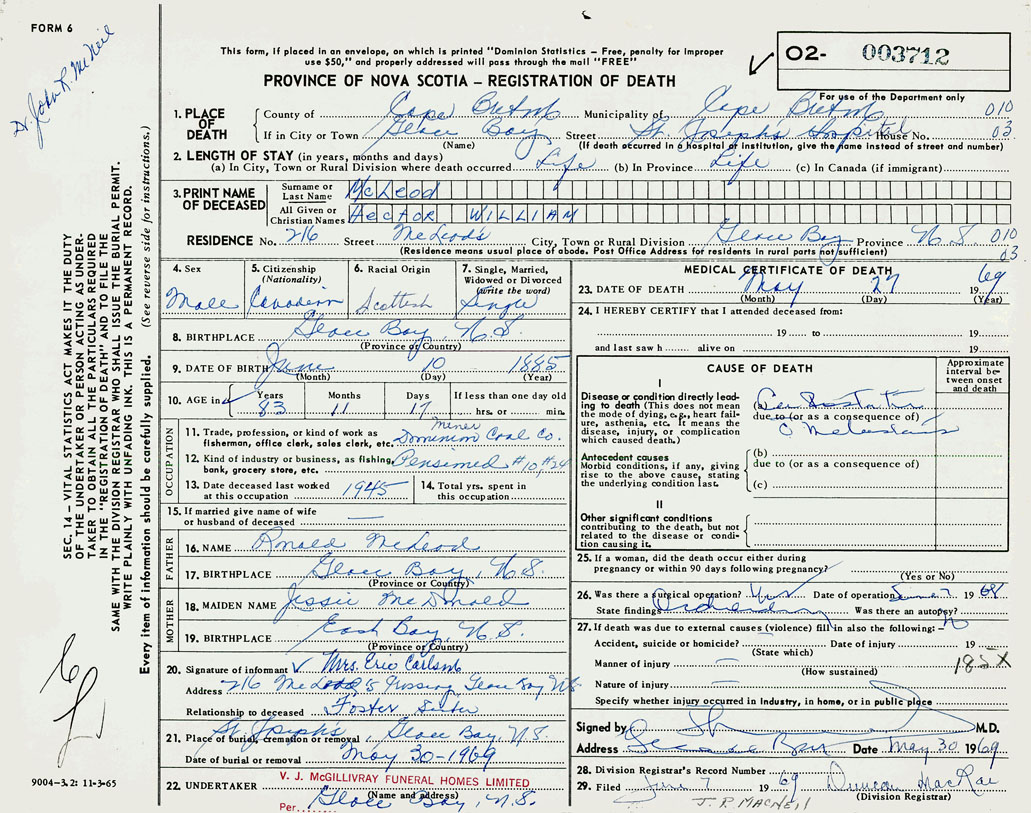 FORM 6
Dr. John R. McNeil
This form, if placed in an envelope, on which is printed "Dominion Statistics – Free, penalty for improper
use $50," and properly addressed will pass through the mail "FREE"
PROVINCE OF NOVA SCOTIA – REGISTRATION OF DEATH
O2- 003712
For use of the Department only
1. PLACE OF DEATH
County of Cape Breton Municipality of Cape Breton 010
If in City or Town Glace Bay Street St. Joseph's Hospital House No. 03
(Name) (If death occurred in a hospital or institution, give the name instead of street and number)
2. LENGTH OF STAY (in years, months and days)
(a) In City, Town or Rural Division where death occurred Life (b) In Province Life (c) In Canada (if immigrant)
3. PRINT NAME OF DECEASED
Surname or Last Name McLeod
All Given or Christian Names HECTOR WILLIAM
RESIDENCE No. 216 Street McLeod's City, Town or Rural Division Glace Bay Province N.S. 010
(Residence means usual place of abode. Post Office Address for residents in rural parts not sufficient) 03
4. Sex Male
5. Citizenship (Nationality) Canadian
6. Racial Origin Scottish
7. Single, Married, Widowed or Divorced (write the word) Single
8. BIRTHPLACE Glace Bay, N.S.
(Province or Country)
9. DATE OF BIRTH June 10 1885
(Month) (Day) (Year)
10. AGE in Years 83 Months 11 Days 17 If less than one day old hrs. or min.
OCCUPATION
11. Trade, profession, or kind of work as fisherman, office clerk, sales clerk, etc. Miner Dominion Coal Co.
12. Kind of industry or business, as fishing, bank, grocery store, etc. Pensioned #10, #24
13. Date deceased last worked at this occupation 1945
14. Total yrs. spent in this occupation
15. If married give name of wife or husband of deceased —
FATHER
16. NAME Ronald McLeod
17. BIRTHPLACE Glace Bay, N.S.
(Province or Country)
MOTHER
18. MAIDEN NAME Jessie McDonald
19. BIRTHPLACE East Bay, N.S.
(Province or Country)
20. Signature of informant Mrs. Eric Carlson
Address 216 McLeod's Crossing, Glace Bay NS
Relationship to deceased Foster Sister
21. Place of burial, cremation or removal St. Joseph's, Glace Bay, N.S.
Date of burial or removal May 30-1969
22. UNDERTAKER V. J. McGILLIVRAY FUNERAL HOMES LIMITED
(Name and address)
Per Glace Bay, N.S.
MEDICAL CERTIFICATE OF DEATH
23. DATE OF DEATH May 27 1969
(Month) (Day) (Year)
24. I HEREBY CERTIFY that I attended deceased from:
19 to 19
and last saw h alive on 19
CAUSE OF DEATH
Approximate interval between onset and death
I
Disease or condition directly leading to death (This does not mean the mode of dying, e.g., heart failure, asthenia, etc. It means the disease, injury, or complication which caused death.)
(a) Ca Prostate
due to (or as a consequence of)
c Metastasis
Antecedent causes
Morbid conditions, if any, giving rise to the above cause, stating the underlying condition last.
(b)
due to (or as a consequence of)
(c)
II
Other significant conditions
contributing to the death, but not related to the disease or condition causing it.
25. If a woman, did the death occur either during
pregnancy or within 90 days following pregnancy?
(Yes or No)
26. Was there a surgical operation? Yes Date of operation June 7 1968
State findings Orchidectomy Was there an autopsy? No
27. If death was due to external causes (violence) fill in also the following:
Accident, suicide or homicide? Date of injury 19
(State which)
Manner of injury 185X
(How sustained)
Nature of injury
Specify whether injury occurred in Industry, in home, or in public place
Signed by M.D.
Address Glace Bay Date May 30 1969
28. Division Registrar's Record Number
29. Filed June 7 1969 Duncan MacRae
(Division Registrar)
J. R. MacNeil
SEC. 14 – VITAL STATISTICS ACT MAKES IT THE DUTY
OF THE UNDERTAKER OR PERSON ACTING AS UNDER-
TAKER TO OBTAIN ALL THE PARTICULARS REQUIRED
IN THE "REGISTRATION OF DEATH" AND TO FILE THE
SAME WITH THE DIVISION REGISTRAR WHO SHALL ISSUE THE BURIAL PERMIT.
WRITE PLAINLY WITH UNFADING INK. THIS IS A PERMANENT RECORD.
Every item of information should be carefully supplied. (See reverse side for instructions.)
9004-3.2: 11-3-65